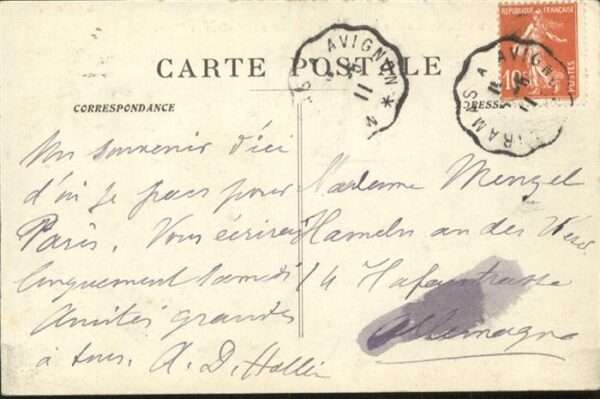 CARTE POSTALE
CORRESPONDANCE
ADRESSE
REPUBLIQUE FRANÇAISE
10c
POSTES
MIRAMAS A AVIGNON
MIRAMAS A AVIGNON
Un souvenir d'ici
d'où je pars pour
Paris. Vous écrirez
longuement Samedi
Amitiés grandes
à tous. A. D.
Madame Menzel
Hameln an der Weser
14 Hafenstrasse
Allemagne